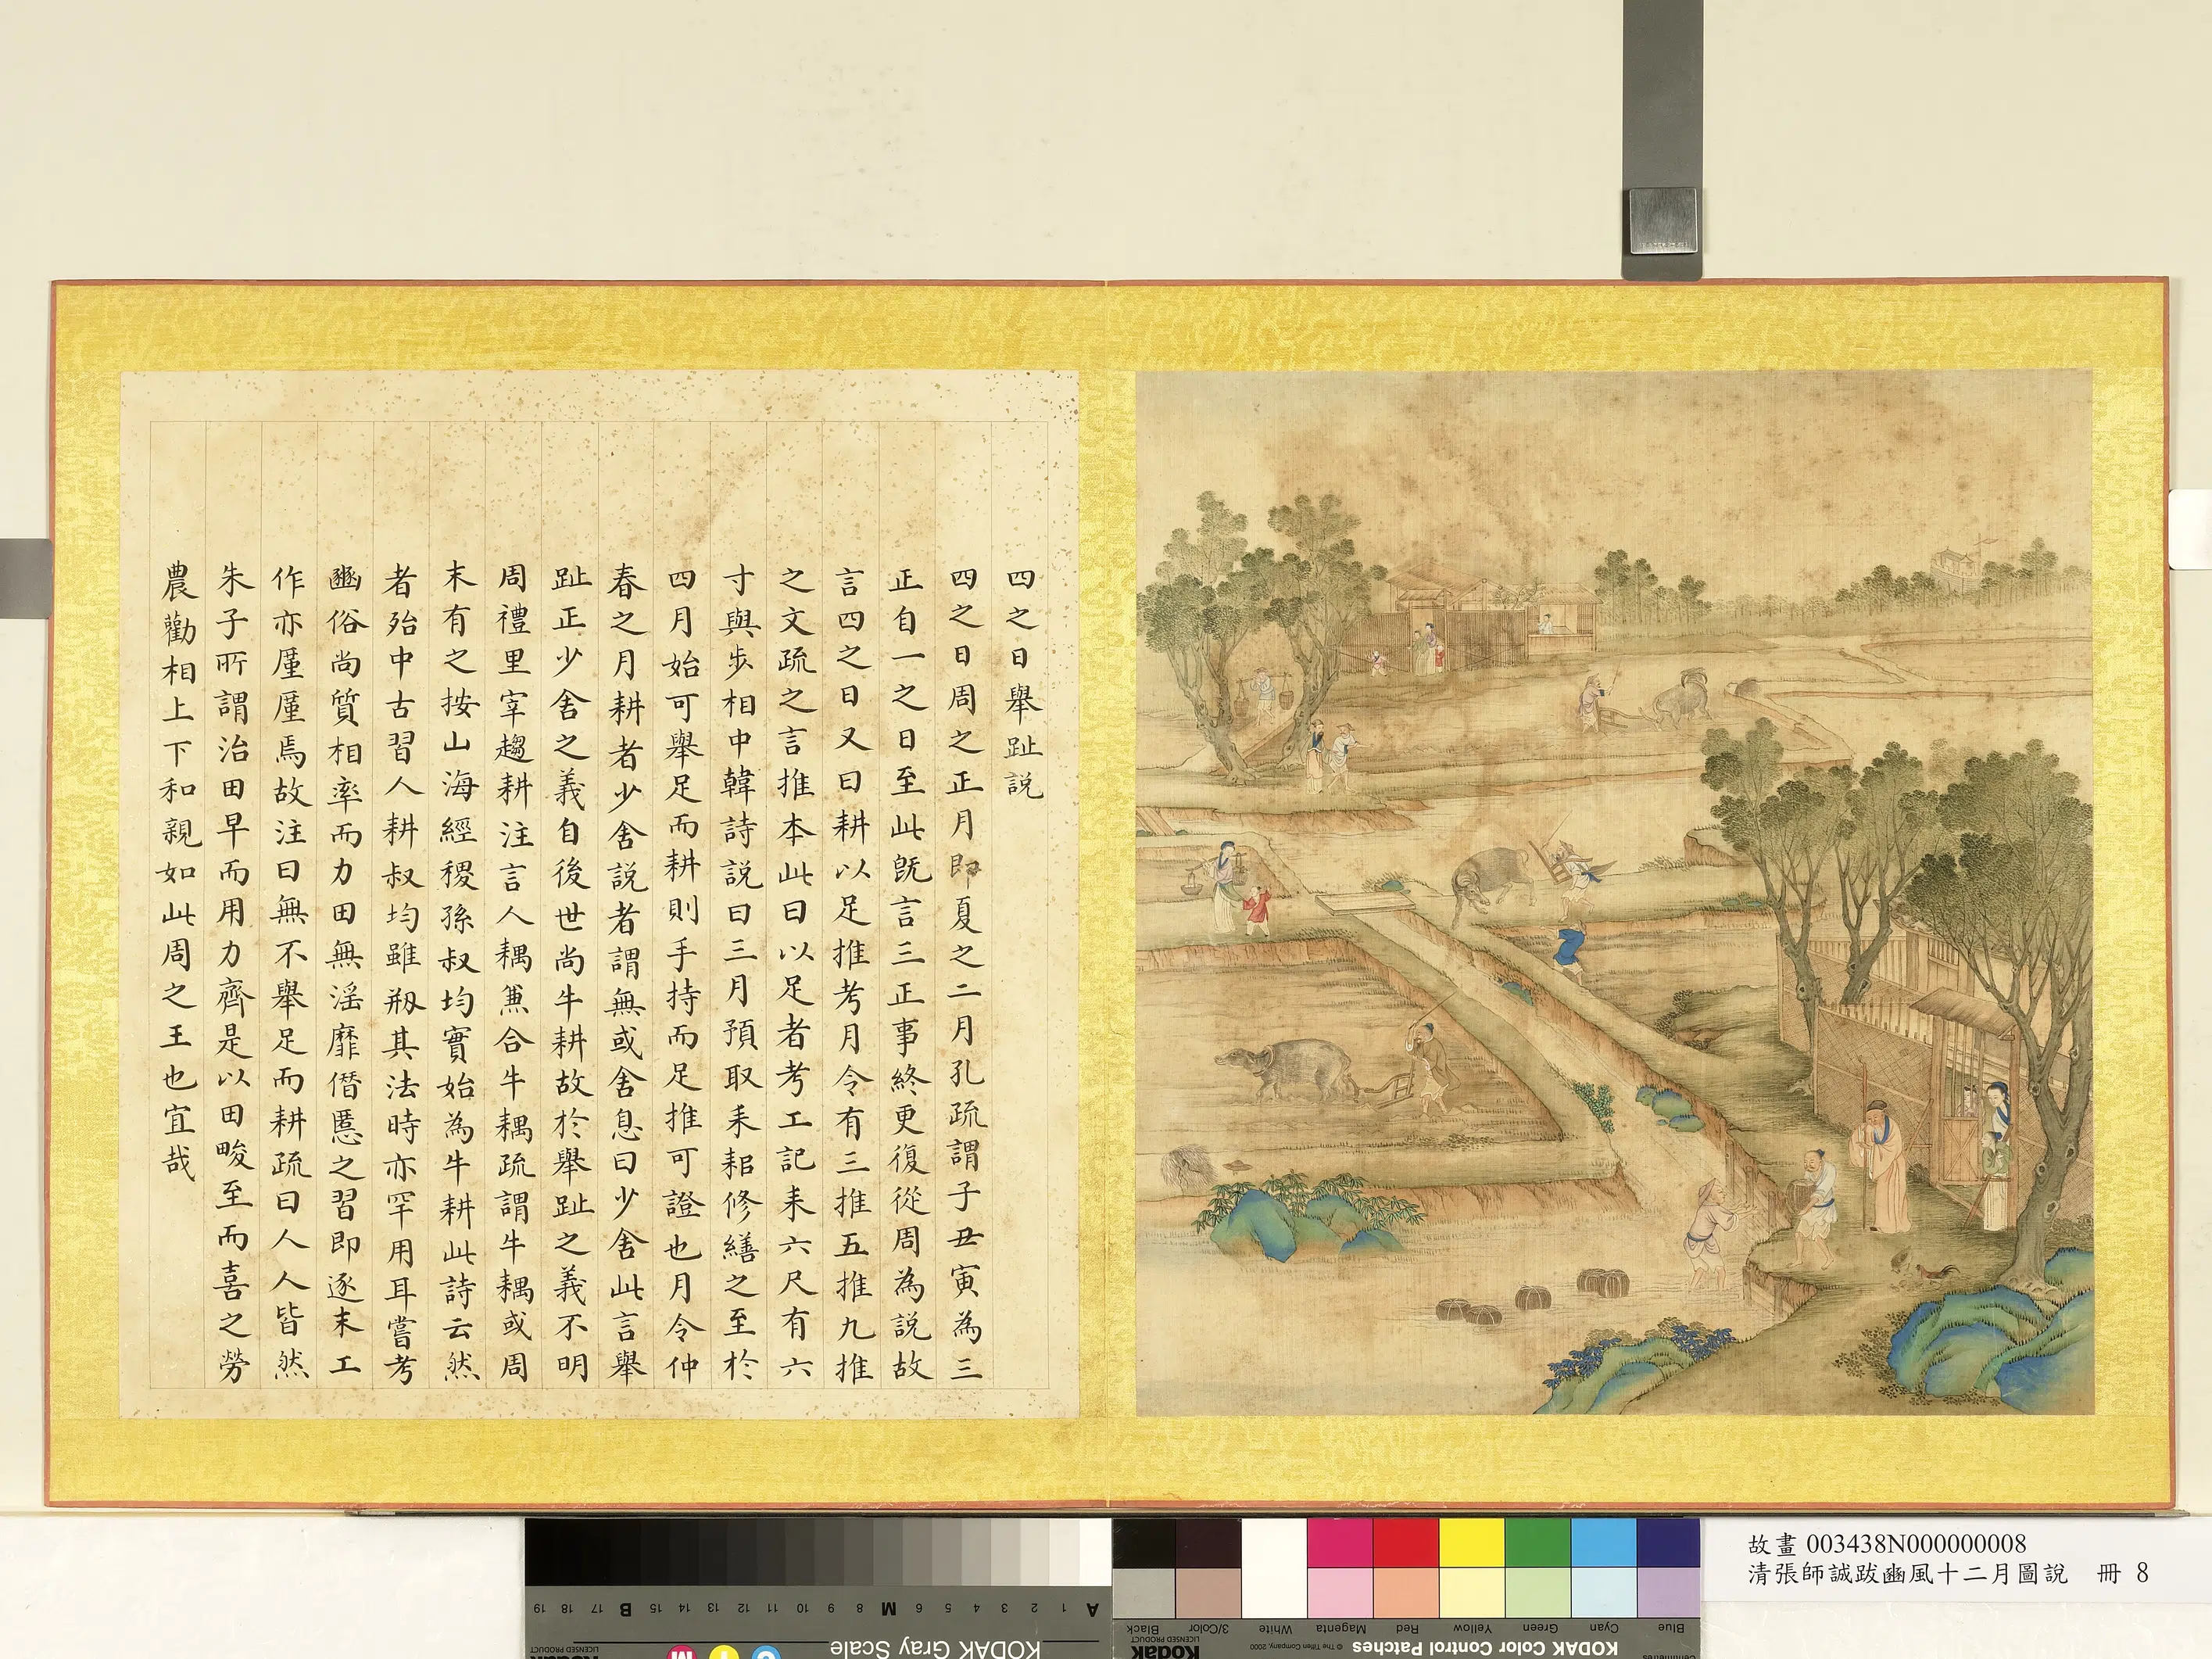 四之日舉趾説
四之日周之正月即夏之二月孔疏謂子丑寅為三
正自一之日至此旣言三正事終更復從周為説故
言四之日又曰耕以足推考月令有三推五推九推
之文疏之言推本此曰以足者考工記耒六尺有六
寸與步相中韓詩説曰三月預取耒耜修繕之至於
四月始可舉足而耕則手持而足推可證也月令仲
春之月耕者少舍説者謂無或舍息曰少舍此言舉
趾正少舍之義自後世尚牛耕故於舉趾之義不明
周禮里宰趨耕注言人耦兼合牛耦疏謂牛耦或周
末有之按山海經稷孫叔均實始為牛耕此詩云然
者殆中古習人耕叔均雖剏其法時亦罕用耳嘗考
豳俗尚質相率而力田無滛靡僭慝之習即逐末工
作亦厪厪焉故注曰無不舉足而耕疏曰人人皆然
朱子所謂治田早而用力齊是以田畯至而喜之勞
農勸相上下和親如此周之王也宜哉
故畫 003438N000000008
清張師誠跋豳風十二月圖說 冊 8
KODAK Gray Scale
A 1 2 3 4 5 6 M 8 9 10 11 12 13 14 15 B 17 18 19
C Y M
Kodak
LICENSED PRODUCT
KODAK Color Control Patches
© The Tiffen Company, 2000
Kodak
LICENSED PRODUCT
Blue Cyan Green Yellow Red Magenta White 3/Color Black
Centimetres